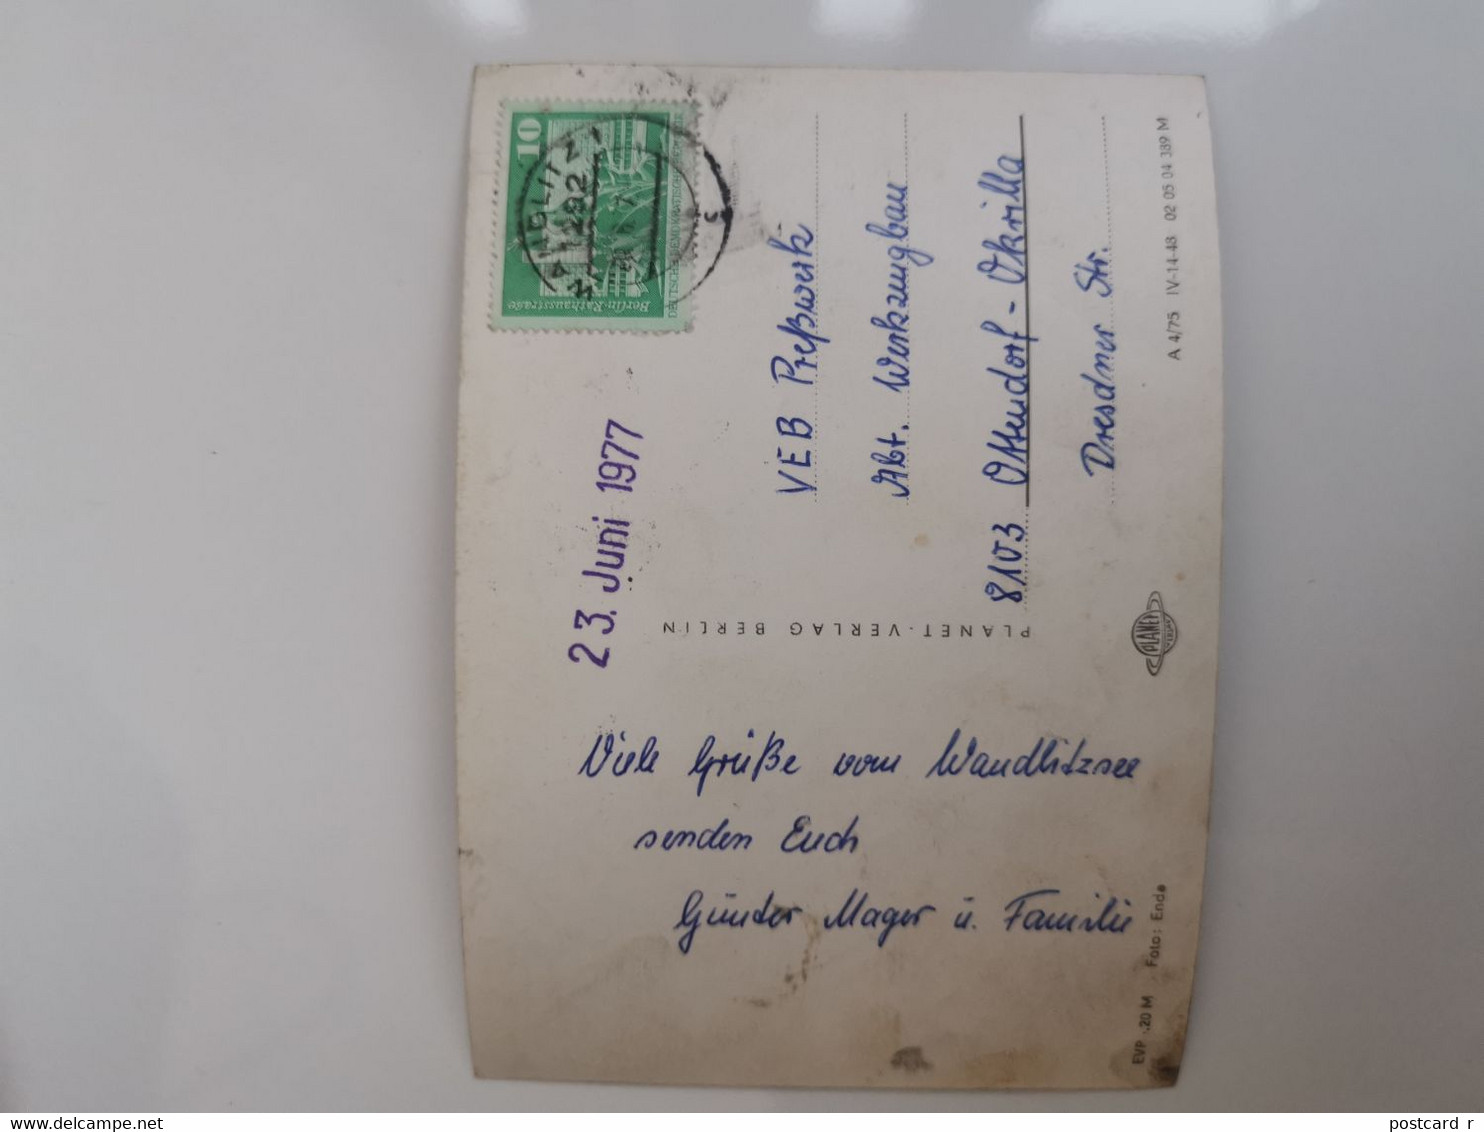 10
Berlin-Rathausstraße
WANDLITZ 1
1292
23. Juni 1977
VEB Preßwerk
Abt. Werkzeugbau
8103 Ottendorf-Okrilla
Dresdner Str.
PLANET-VERLAG BERLIN
Viele Grüße vom Wandlitzsee
senden Euch
Günter Mager u. Familie
PLANET
A 4/75 IV-14-48 02 05 04 339 M
EVP 20 M Foto: Ende
postcard r